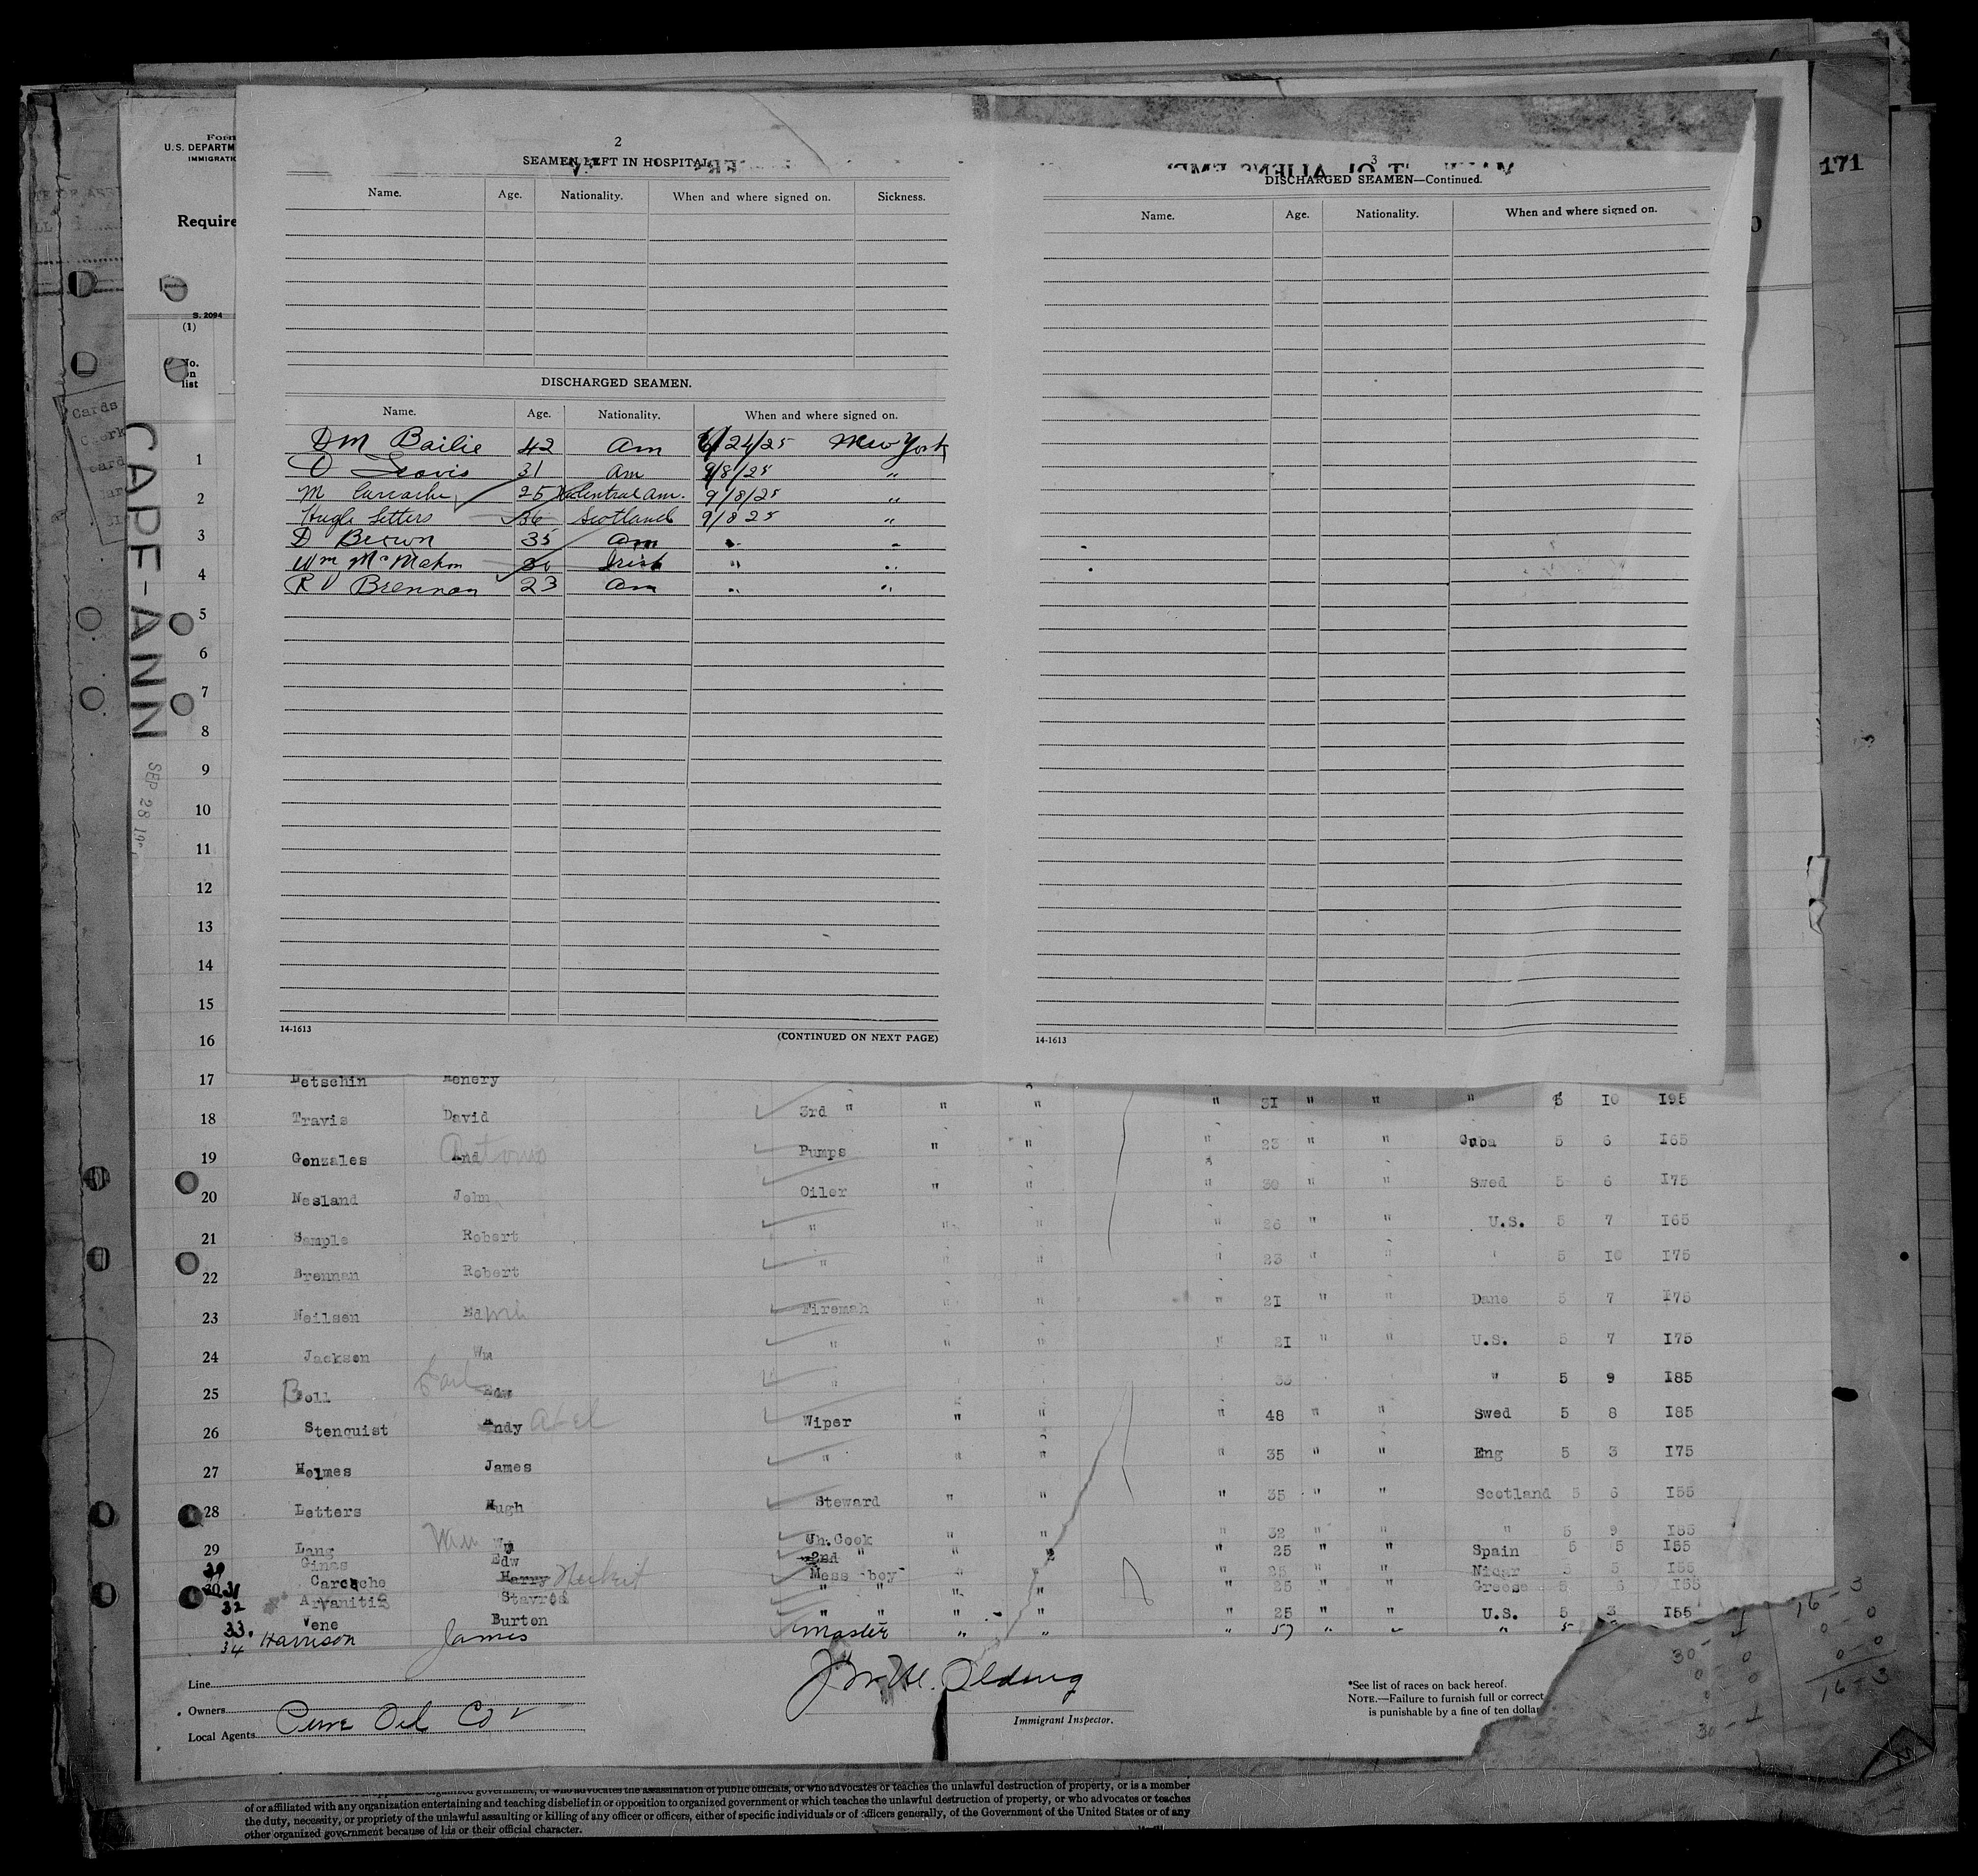 Form
U.S. DEPARTM
IMMIGRATIO
Require
S. 2094
(1)
No.
on
list
171
CAPE-ANN
SEP 28 19
Cards
2
SEAMEN LEFT IN HOSPITAL.
Name. Age. Nationality. When and where signed on. Sickness.
DISCHARGED SEAMEN.
Name. Age. Nationality. When and where signed on.
DM Bailie 42 Am 6/24/25 New York
D 31 Am 9/8/25 "
M 25 Central Am. 9/8/25 "
Hugh Letters 36 Scotland 9/8 25 "
D Brown 35 Am " "
Wm McMahon Irish " "
R V Brennan 23 Am " "
14-1613 (CONTINUED ON NEXT PAGE)
3
DISCHARGED SEAMEN—Continued.
Name. Age. Nationality. When and where signed on.
14-1613
1
2
3
4
5
6
7
8
9
10
11
12
13
14
15
16
17 Detschin Henery
18 Travis David 3rd " " " " 31 " " " 5 10 195
19 Gonzales And Antonio Pumps " " " 23 " " Cuba 5 6 165
20 Nesland John Oiler " " " 30 " " Swed 5 6 175
21 Sample Robert " " " " 26 " " U.S. 5 7 165
22 Brennan Robert " " " " 23 " " " 5 10 175
23 Neilsen Edwin Fireman " " " 21 " " Dane 5 7 175
24 Jackson Wm " " " " 21 " " U.S. 5 7 175
25 Boll Earl Edw " 33 " 5 9 185
26 Stenquist Andy Axel Wiper " " " 48 " " Swed 5 8 185
27 Holmes James " " " " 35 " " Eng 5 3 175
28 Letters Hugh Steward " " " 35 " " Scotland 5 6 155
29 Lang Wm Wm Ch. Cook " " " 32 " " " 5 9 185
30 Ginas Edw 2nd " " " " 25 " " Spain 5 5 155
31 Carcache Harry Herbert Mess boy " " " 25 " " Nidar 5 155
32 Arvanitis Stavros " " " " " 25 " " Greese 5 6 155
33. Vene Burton " " " " " 25 " " U.S. 5 3 155
34 Harrison James Master " " " 57 " " " 5
Line
Owners
Local Agents Pure Oil Co
Immigrant Inspector.
*See list of races on back hereof.
NOTE.—Failure to furnish full or correct
is punishable by a fine of ten dollar
16 - 3
0 - 0
30 - 1
16 - 3
organized government, or who advocates the assassination of public officials, or who advocates or teaches the unlawful destruction of property, or is a member
of or affiliated with any organization entertaining and teaching disbelief in or opposition to organized government or which teaches the unlawful destruction of property, or who advocates or teaches
the duty, necessity, or propriety of the unlawful assaulting or killing of any officer or officers, either of specific individuals or of officers generally, of the Government of the United States or of any
other organized government because of his or their official character.